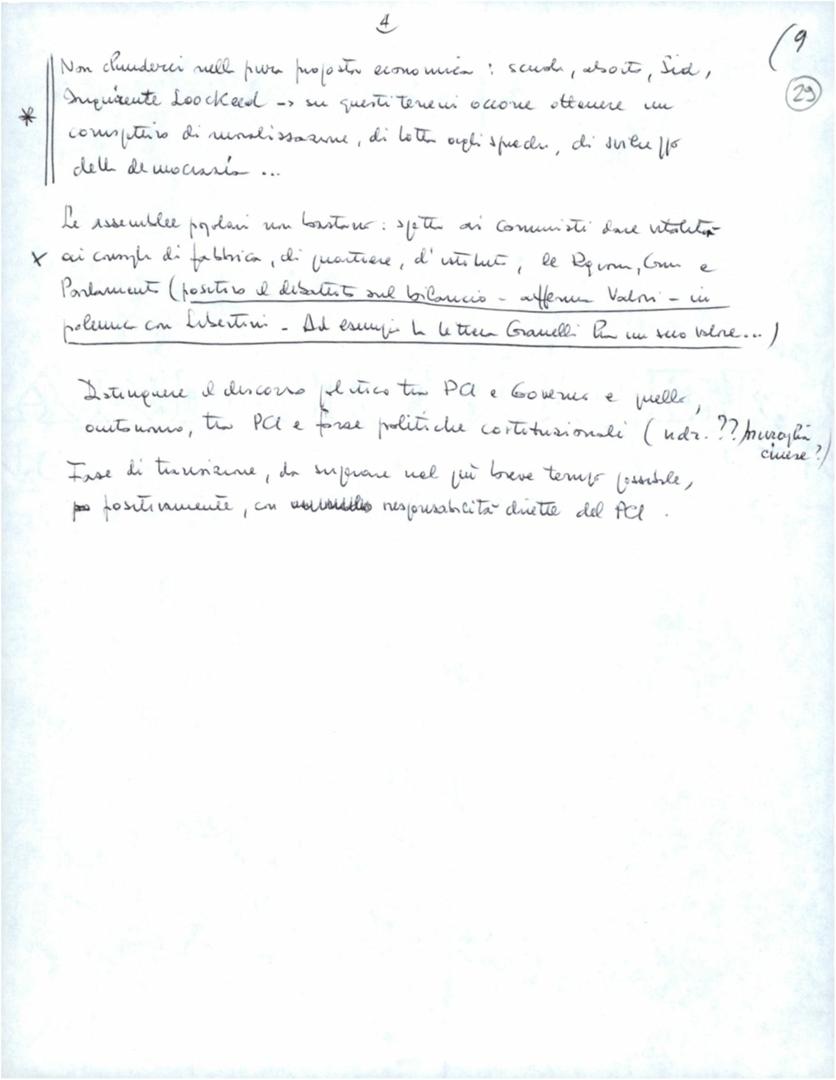 4
(9
29
Non chiuderci nella pura proposta economica : scuola, aborto, Sid,
Inquirente Loockeed -> su questi terreni occorre ottenere un
* di moralizzazione, di lotta agli sprechi, di sviluppo
della democrazia ...
Le assemblee popolari non bastano : spetta ai comunisti dare vitalità
x ai consigli di fabbrica, di quartiere, d'istituto, le Regioni, Com e
Parlamento (positivo il dibattito sul bilancio - afferma Valori - in
polemica con Libertini - Ad esempio la lettera Granelli ha un suo valore...)
Distinguere il discorso politico tra PCI e Governo e quello,
autonomo, tra PCI e forze politiche costituzionali (ndr. ?? muraglia
cinese?)
Fase di transizione, da superare nel più breve tempo possibile,
positivamente, con responsabilità dirette del PCI .